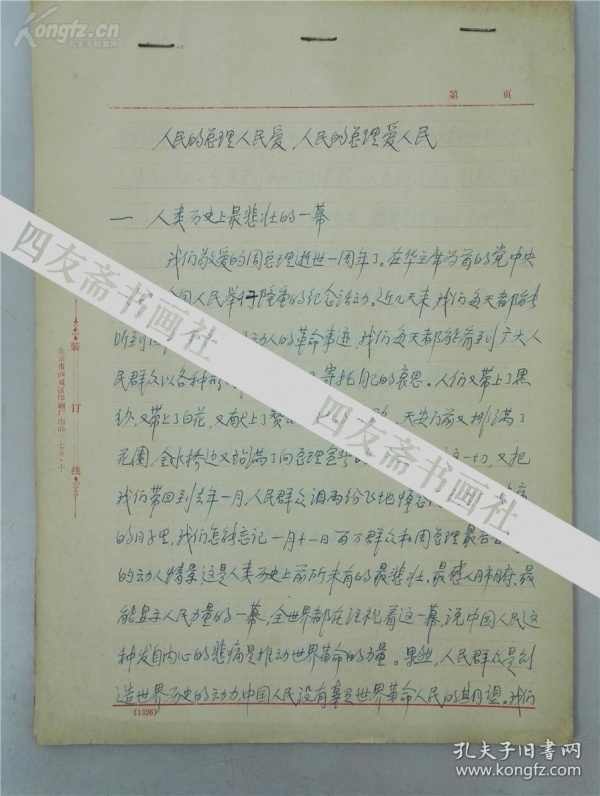 Kongfz.cn
孔夫子档案网
第 页
人民的总理人民爱、人民的总理爱人民
一 人类历史上最悲壮的一幕
我们敬爱的周总理逝世一周年了。在华主席为首的党中央
全国人民举行隆重的纪念活动。近几天来,我们每天都能
听到 动人的革命事迹,我们每天都能看到广大人
民群众以各种形 寄托自己的哀思。人们又带上了黑
纱,又带上了白花,又献上了 天安门前又排满了
花圈,金水桥边又站满了向总理宣誓的 这一切,又把
我们带回到去年一月,人民群众泪雨纷飞地悼念
的日子里,我们怎能忘记一月十一日百万群众和周总理最后
的动人情景这是人类历史上前所未有的最悲壮、最感人肺腑、最
能显示人民力量的一幕,全世界都在注视着这一幕,说中国人民这
种发自内心的悲痛是推动世界革命的力量。果然,人民群众是创
造世界历史的动力中国人民没有辜负世界革命人民的期望。我们
(1326)
装订线
北京市西城区印刷厂出品 七五·十
四友斋书画社
四友斋书画社
四友斋书画社
孔夫子旧书网
www.kongfz.com